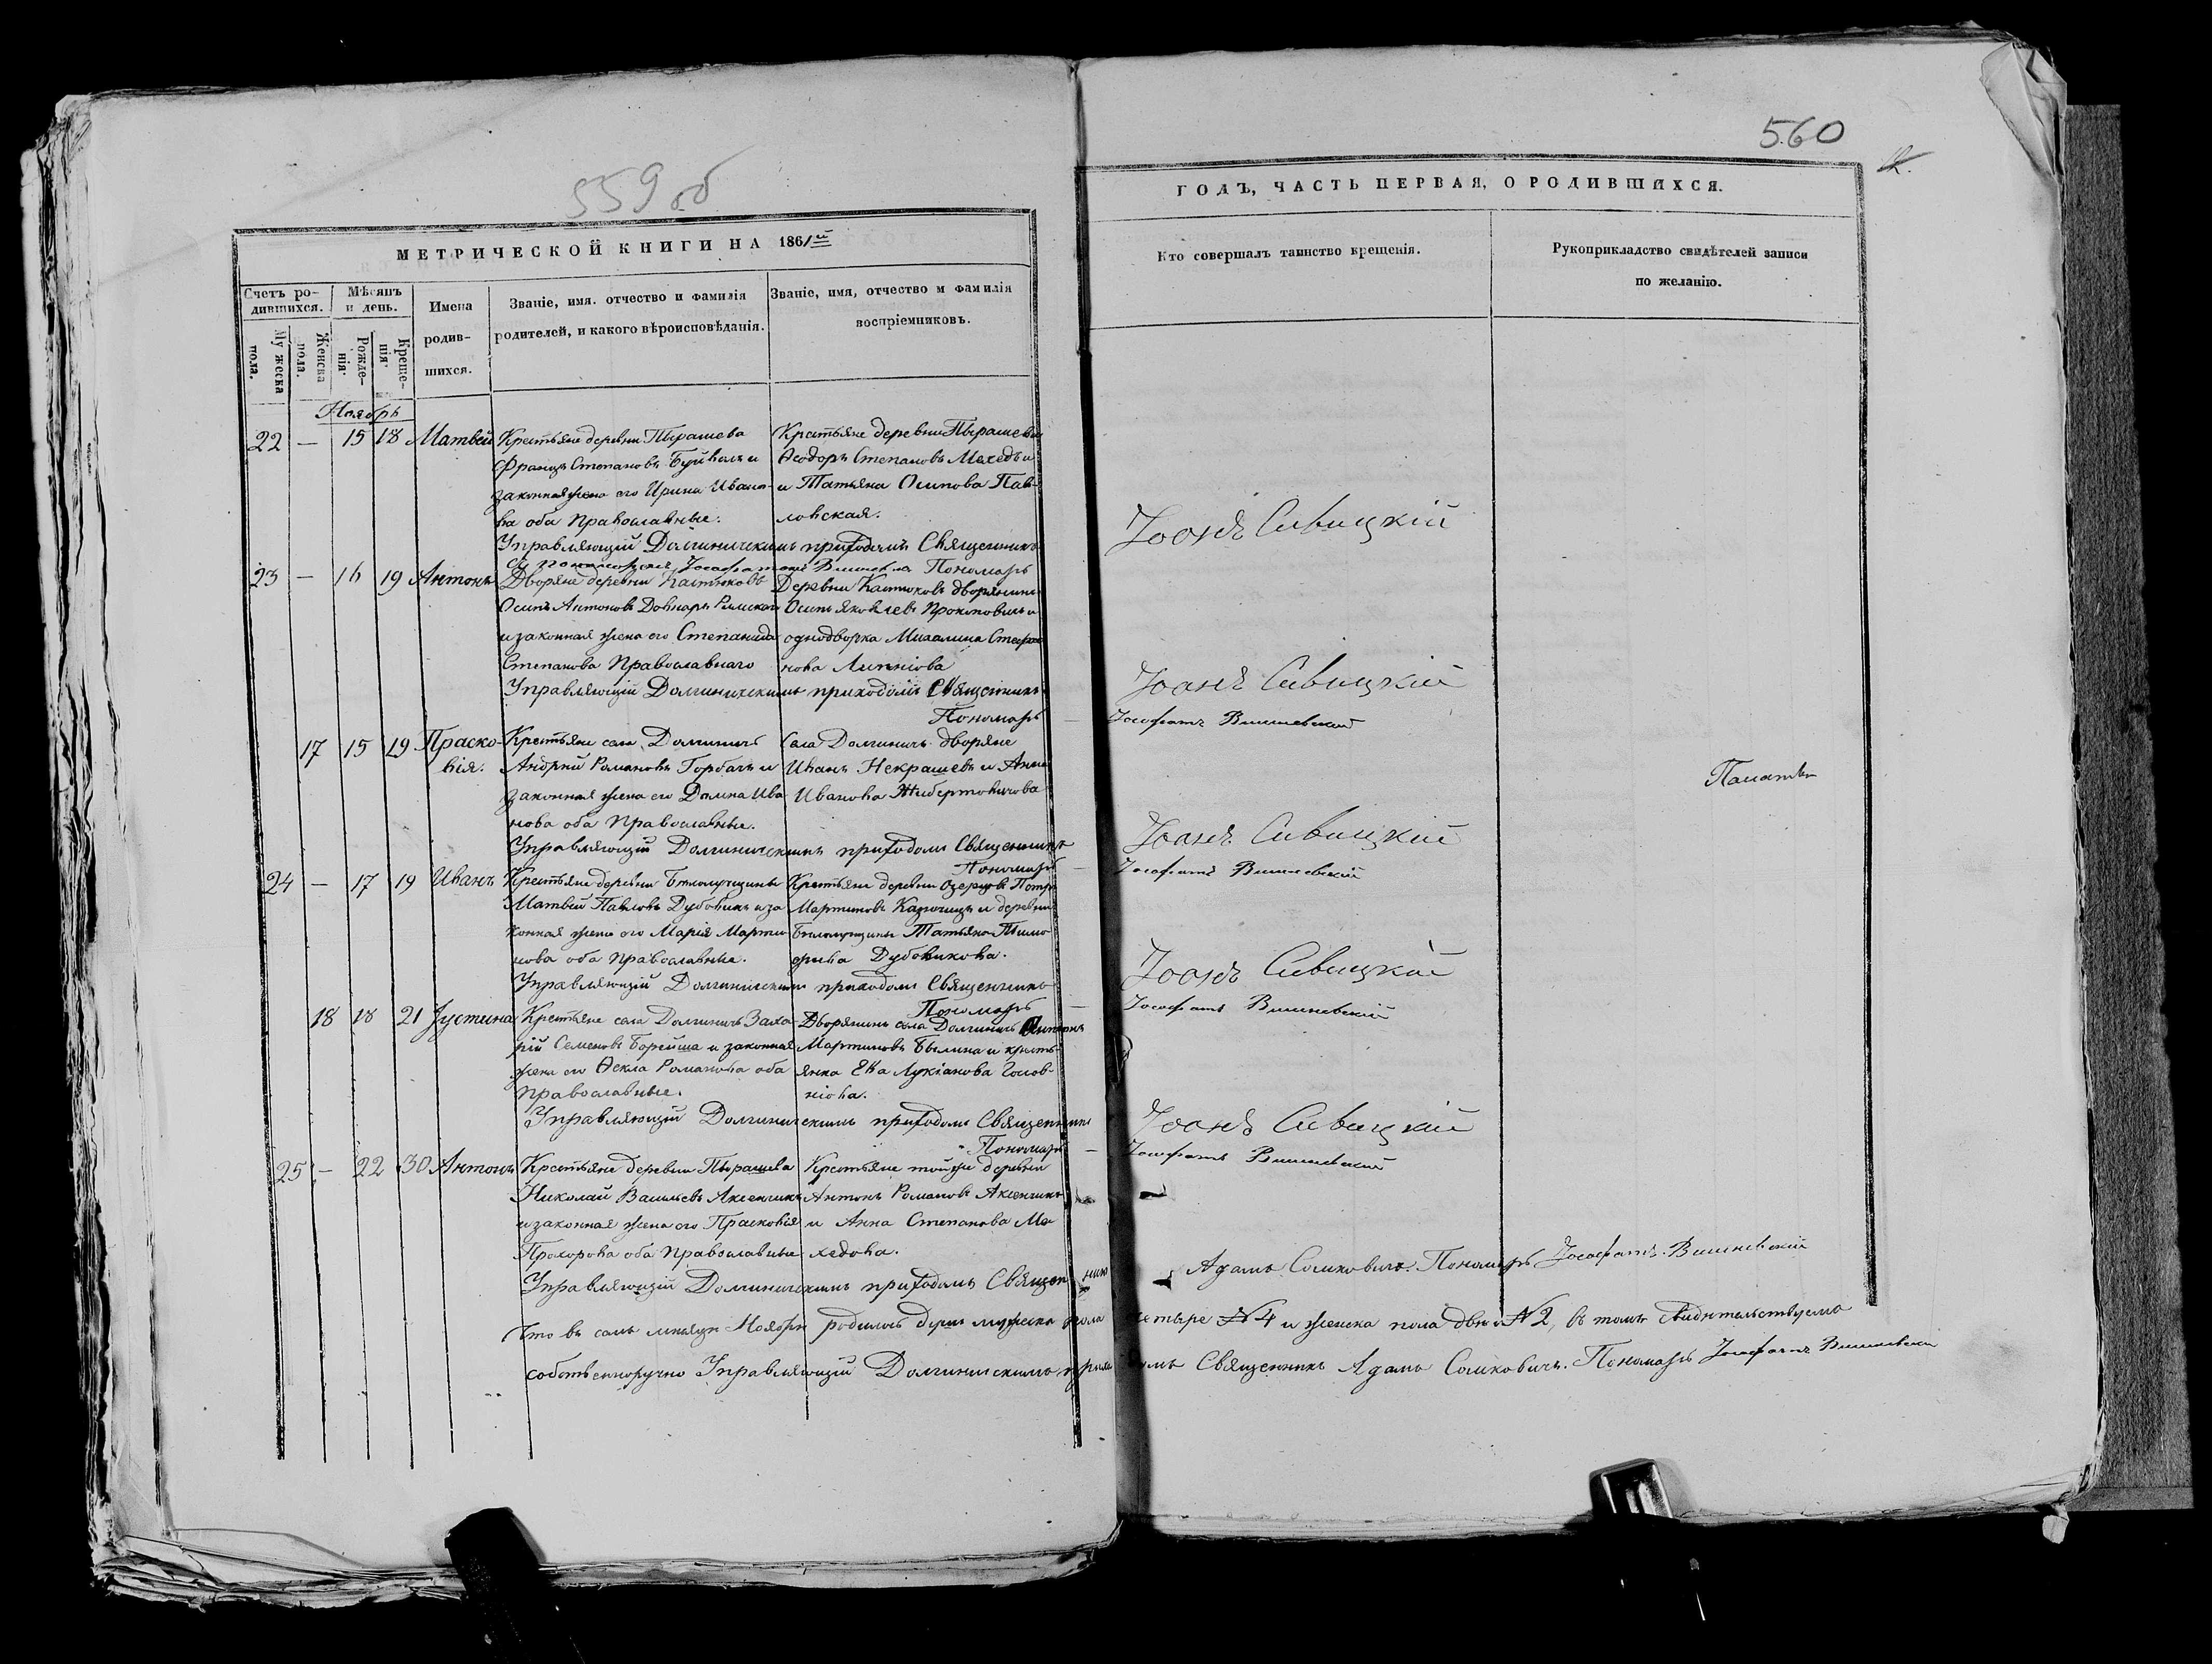 559 об
560
МЕТРИЧЕСКОЙ КНИГИ НА 1861й
ГОДЪ, ЧАСТЬ ПЕРВАЯ, О РОДИВШИХСЯ.
Счетъ родившихся.
Мѣсяцъ и день.
Имена родившихся.
Званіе, имя. отчество и фамилія родителей, и какого вѣроисповѣданія.
Званіе, имя, отчество и фамилія воспріемниковъ.
Кто совершалъ таинство крещенія.
Рукоприкладство свидѣтелей записи по желанію.
Мужеска пола.
Женска пола.
Рожденія
Крещенія
Ноябрь
22 — 15 18 Матвей
Крестьяне деревни Пырашева
Францъ Степановъ Буйвалъ и
законная жена его Ирина Ивано-
ва оба Православные.
Крестьяне деревни Пырашева
Ѳеодоръ Степановъ Мехедъ и
и Татьяна Осипова Пав-
ловская.
Управляющій Долгиничскимъ приходомъ Священникъ
Іоаннъ Сивицкій
Пономарь
23 — 16 19 Антонъ
Дворяне деревни Кастюковъ
Осипъ Антоновъ Довнаръ Римскаго
и законная жена его Степанида
Степанова Православнаго
Деревни Кастюковъ дворянинъ
Осипъ Яковлевъ Прокоповичъ и
однодворка Михалина Стефа
нова Липнiова
Управляющій Долгиничскимъ приходомъ Священникъ
Іоаннъ Сивицкій
Пономарь — Іосафатъ Вишневскій
17 15 19 Праско-
вія.
Крестьяне села Долгиничъ
Андрей Романовъ Горбачъ и
законная жена его Домна Ива
нова оба Православные.
Села Долгиничъ дворяне
Иванъ Некрашевъ и Анна
Иванова Жибертовичова
Управляющій Долгиничскимъ приходомъ Священникъ
Іоаннъ Сивицкій
Пономарь — Іосафатъ Вишневскій
24 — 17 19 Иванъ
Крестьяне деревни
Матвей Павловъ Дубовикъ и за
конная жена его Марія Марти
нова оба Православные.
Крестьяне деревни Озерцовъ Петръ
Мартиновъ и деревни
Татьяна Тимо
фѣева Дубовикова.
Управляющій Долгиничскимъ приходомъ Священникъ
Іоаннъ Сивицкій
Пономарь — Іосафатъ Вишневскій
18 18 21 Іустина
Крестьяне села Долгиничъ Заха-
рій Семеновъ Борейша и законная
жена его Ѳекла Романова оба
Православные.
Дворянинъ села Долгиничъ Антонъ
Мартиновъ Былина и кресть-
янка Ева Лукіанова Голов-
ніова.
Управляющій Долгиничскимъ приходомъ Священникъ
Іоаннъ Сивицкій
Пономарь — Іосафатъ Вишневскій
25 — 22 30 Антонъ
Крестьяне деревни Пырашева
Николай Васильевъ Аксенчикъ
и законная жена его Прасковія
Прохорова оба Православные
Крестьяне той же деревни
Антонъ Романовъ Аксенчикъ
и Анна Степанова Ме
хедова.
Управляющій Долгиничскимъ приходомъ Священникъ Адамъ Сомковичъ. Пономарь Іосафатъ Вишневскій
Что въ семъ мѣсяцѣ Ноябрѣ родилось душъ мужеска пола четыре №4 и женска пола двѣ №2, въ томъ свидѣтельствуемъ
собственноручно Управляющій Долгиничскимъ приходомъ Священникъ Адамъ Сомковичъ. Пономарь Іосафатъ Вишневскій